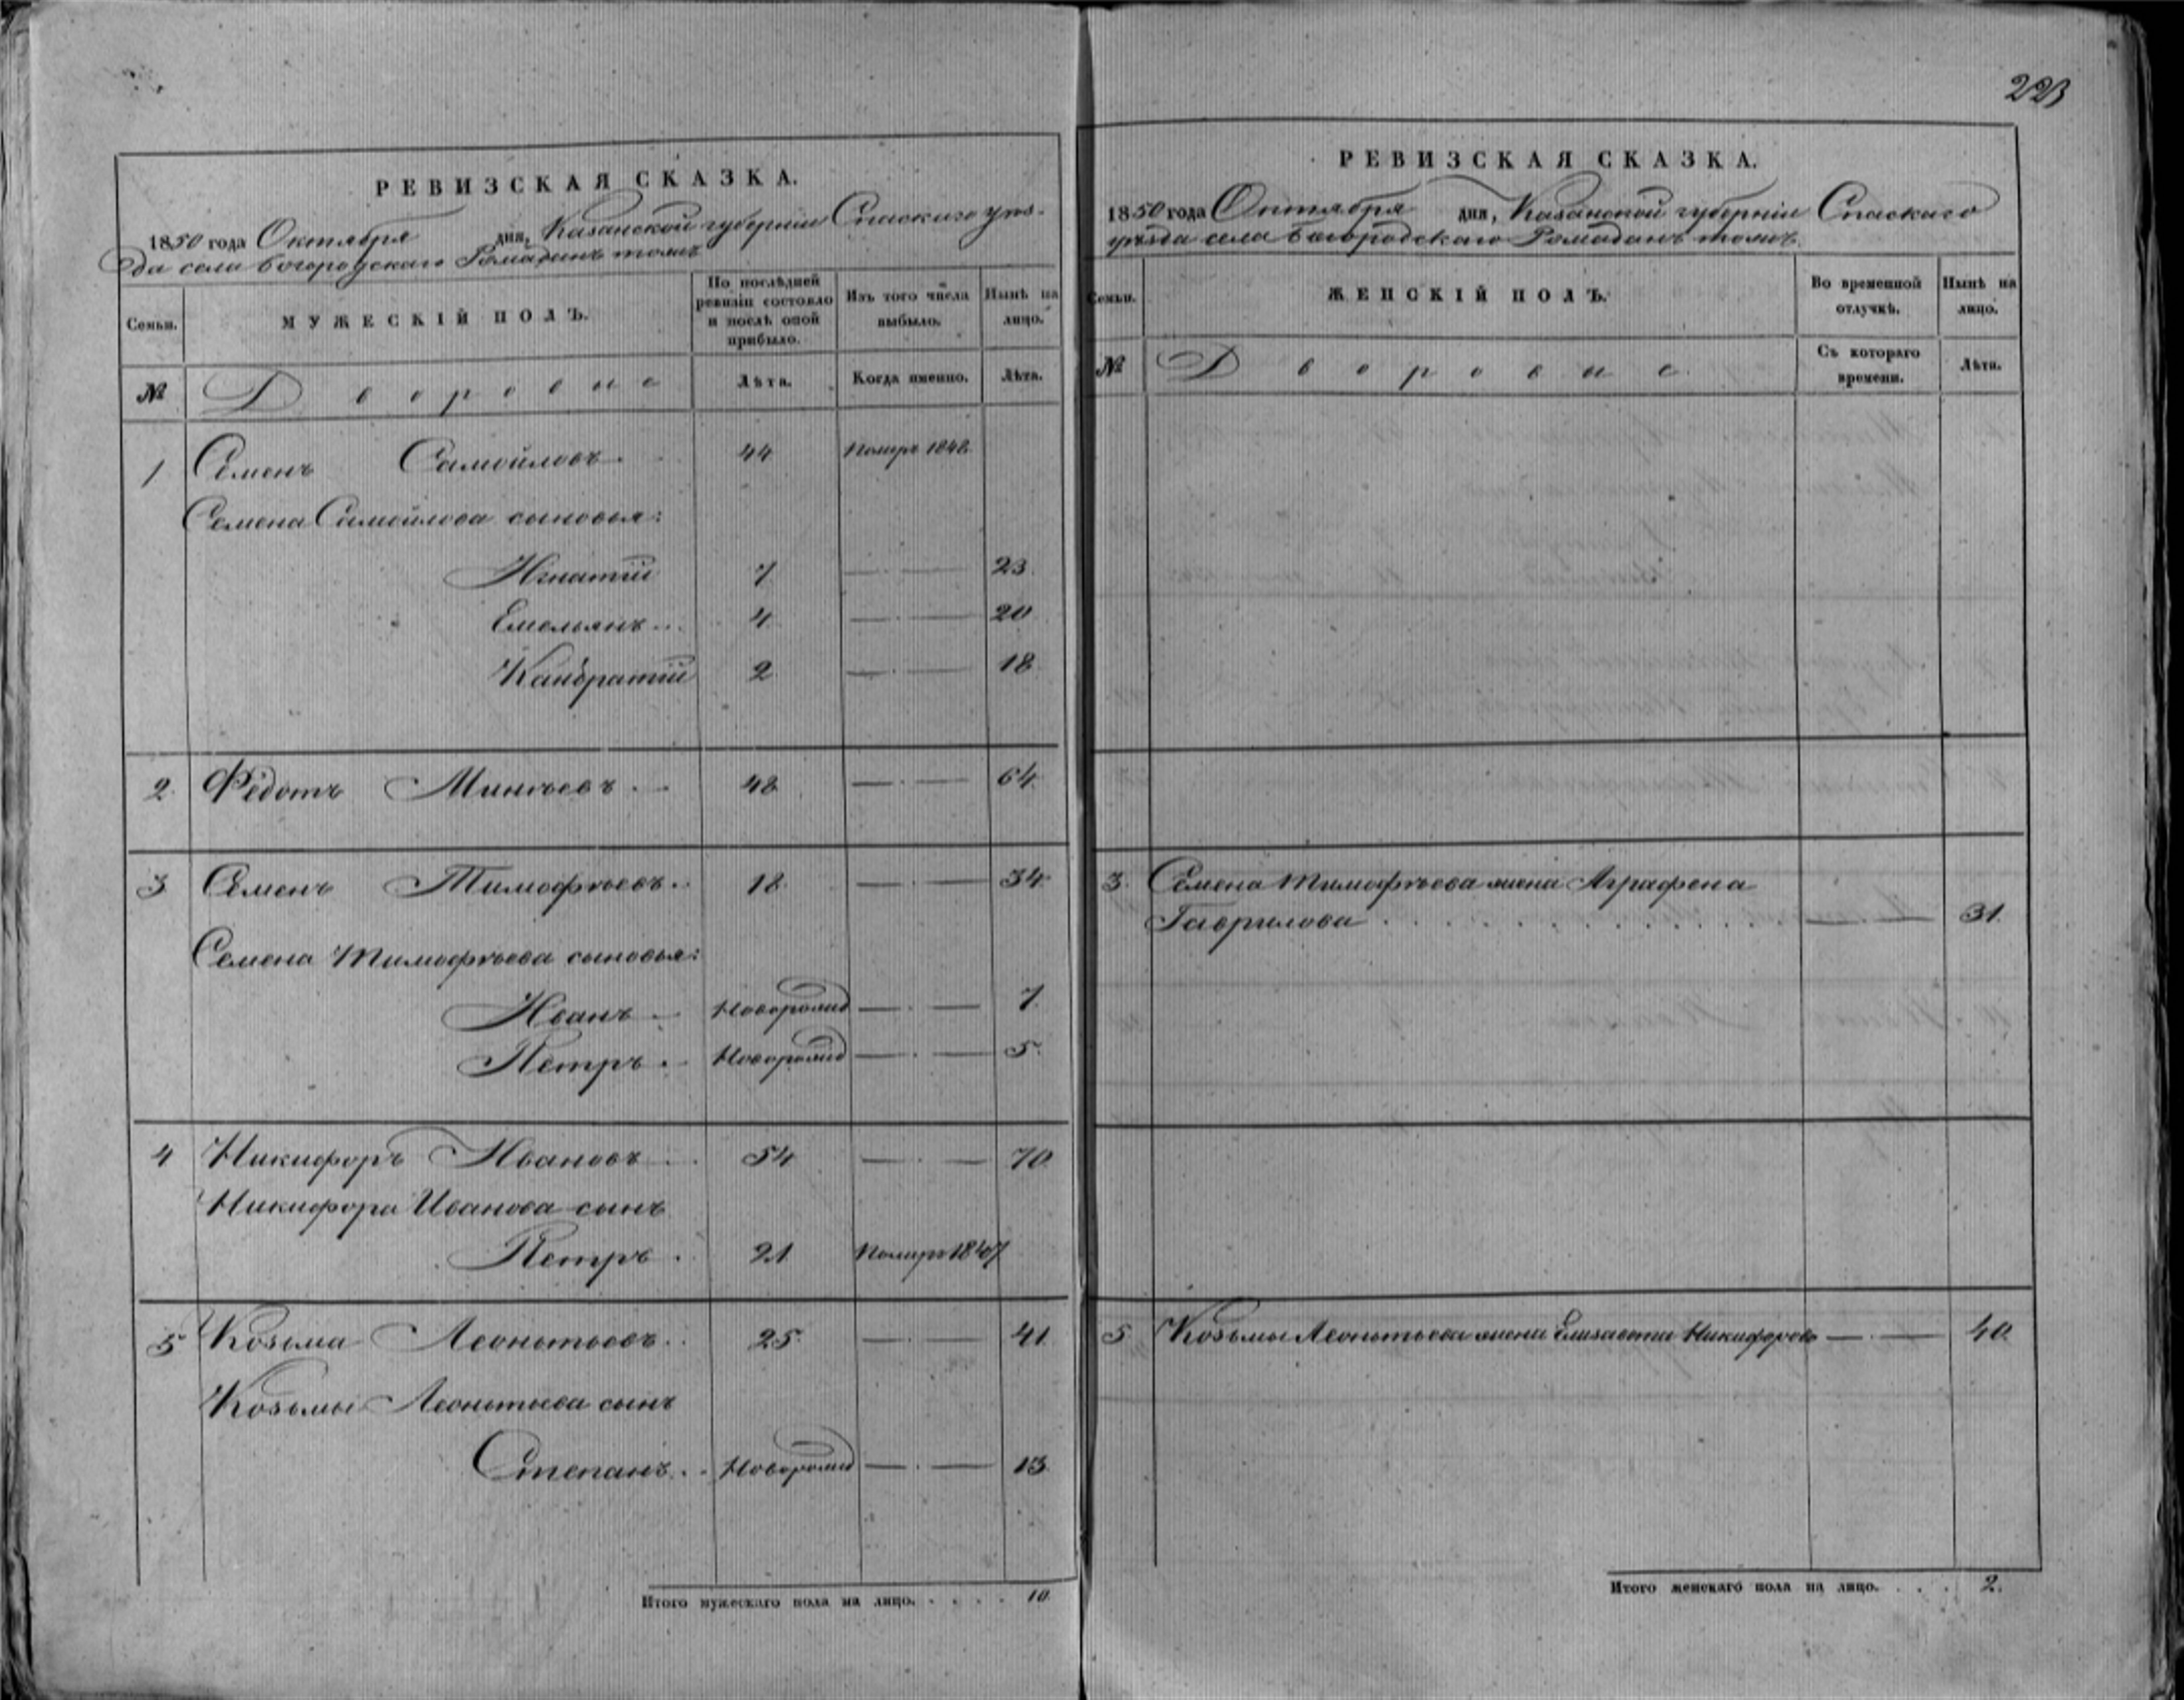 223
РЕВИЗСКАЯ СКАЗКА.
1850 года Октября дня, Казанской губернiи Спаскаго уѣз-
да села Богородскаго Ромаданъ тожъ
Семьи.
МУЖЕСКІЙ ПОЛЪ.
По послѣдней ревизіи состояло и послѣ оной прибыло.
Изъ того числа выбыло.
Нынѣ на лицо.
№
Дворовые
Лѣта.
Когда именно.
Лѣта.
1 Семенъ Самойловъ 44 померъ 1848
Семена Самойлова сыновья:
Игнатiй 7 23
Емельянъ 4 20
Кандратiй 2 18
2. Федотъ Минѣевъ 48 64
3 Семенъ Тимофѣевъ 18. 34
Семена Тимофѣева сыновья:
Иванъ Новорожд 7.
Петръ Новорожд 5.
4 Никифоръ Ивановъ 54 70
Никифора Иванова сынъ
Петръ 21 померъ 1847
5 Козьма Леонтьевъ 25. 41
Козьмы Леонтьева сынъ
Степанъ Новорожд 13.
Итого мужескаго пола на лицо. . . . . 10
РЕВИЗСКАЯ СКАЗКА.
1850 года Октября дня, Казанской губернiи Спаскаго
уѣзда села Багородскаго Ромаданъ тожъ.
Семьи.
ЖЕНСКІЙ ПОЛЪ.
Во временной отлучкѣ.
Нынѣ на лицо.
№
Дворовые
Съ котораго времени.
Лѣта.
3. Семена Тимофѣева жена Аграфена
Гаврилова 31.
5 Козьмы Леонтьева жена Елизавета Никифорова 40
Итого женскаго пола на лицо. . . . 2.